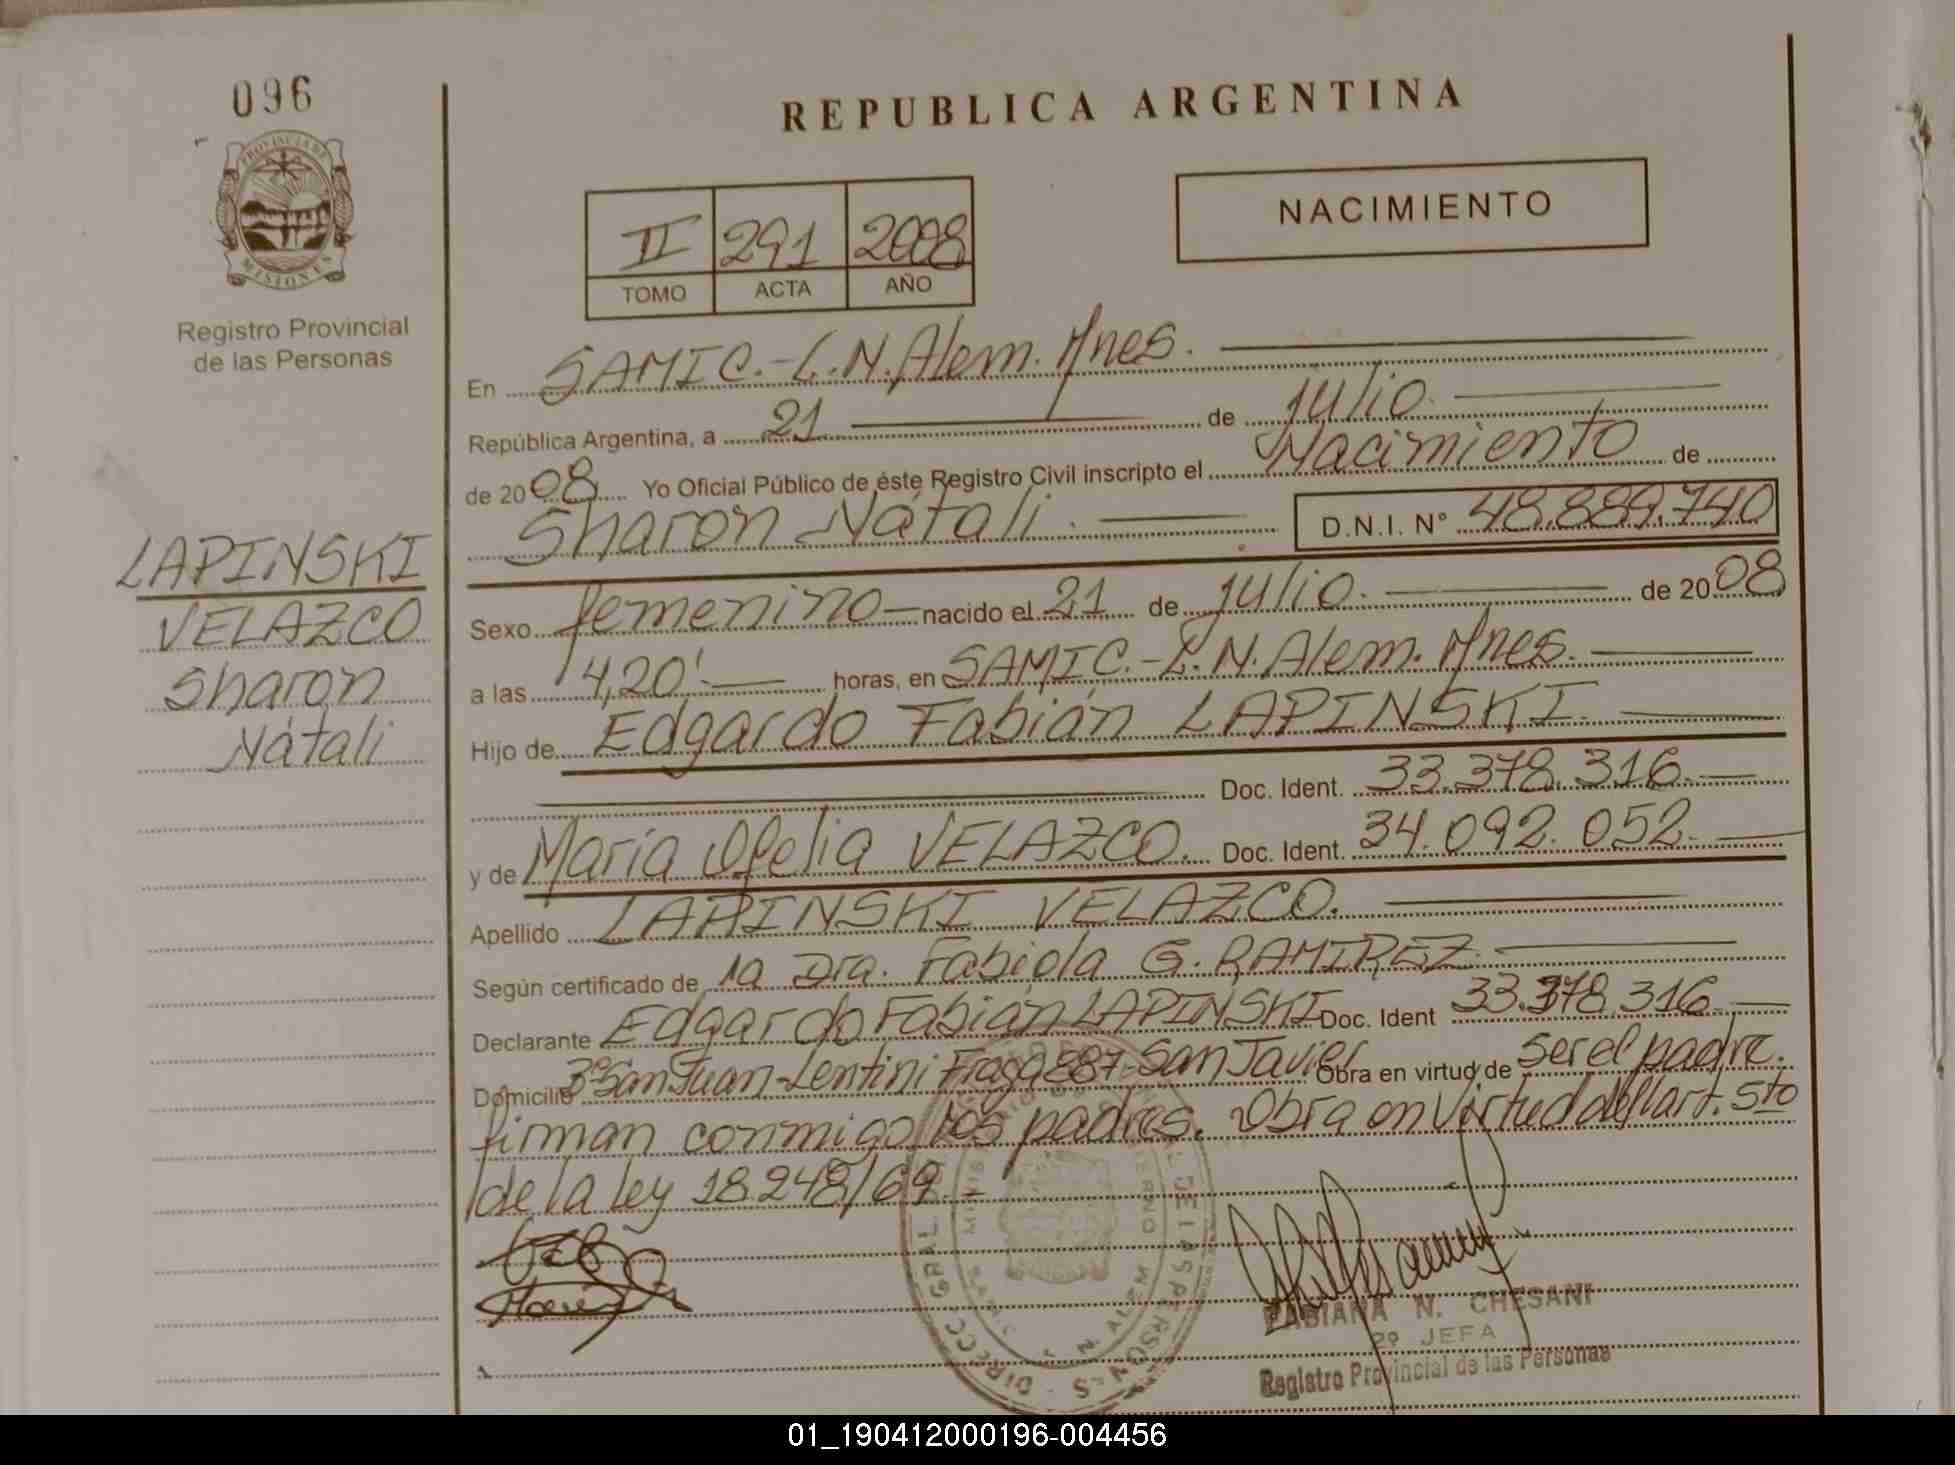 096
REPUBLICA ARGENTINA
PROVINCIA DE
MISIONES
Registro Provincial
de las Personas
II 291 2008
TOMO ACTA AÑO
NACIMIENTO
En SAMIC.-L.N.Alem.Mnes.
República Argentina, a 21 de julio.
de 2008. Yo Oficial Público de éste Registro Civil inscripto el Nacimiento de
Sharon Nátali. D.N.I. N° 48.889.740
LAPINSKI
VELAZCO
Sharon
Nátali
Sexo femenino nacido el 21 de julio. de 2008
a las 14,20'. horas, en SAMIC.-L.N.Alem.Mnes.
Hijo de Edgardo Fabián LAPINSKI.
Doc. Ident. 33.378.316.
y de María Ofelia VELAZCO. Doc. Ident. 34.092.052.
Apellido LAPINSKI VELAZCO.
Según certificado de la Dra. Fabiola G. RAMIREZ.
Declarante Edgardo Fabián LAPINSKI Doc. Ident 33.378.316.
Domicilio Bº San Juan-Lentini Fraga 887-San Javier Obra en virtud de ser el padre.
firman conmigo los padres. Obra en virtud del art. 5to
de la ley 18.248/69.-
FABIANA N. CHESANI
2º JEFA
Registro Provincial de las Personas
01_190412000196-004456